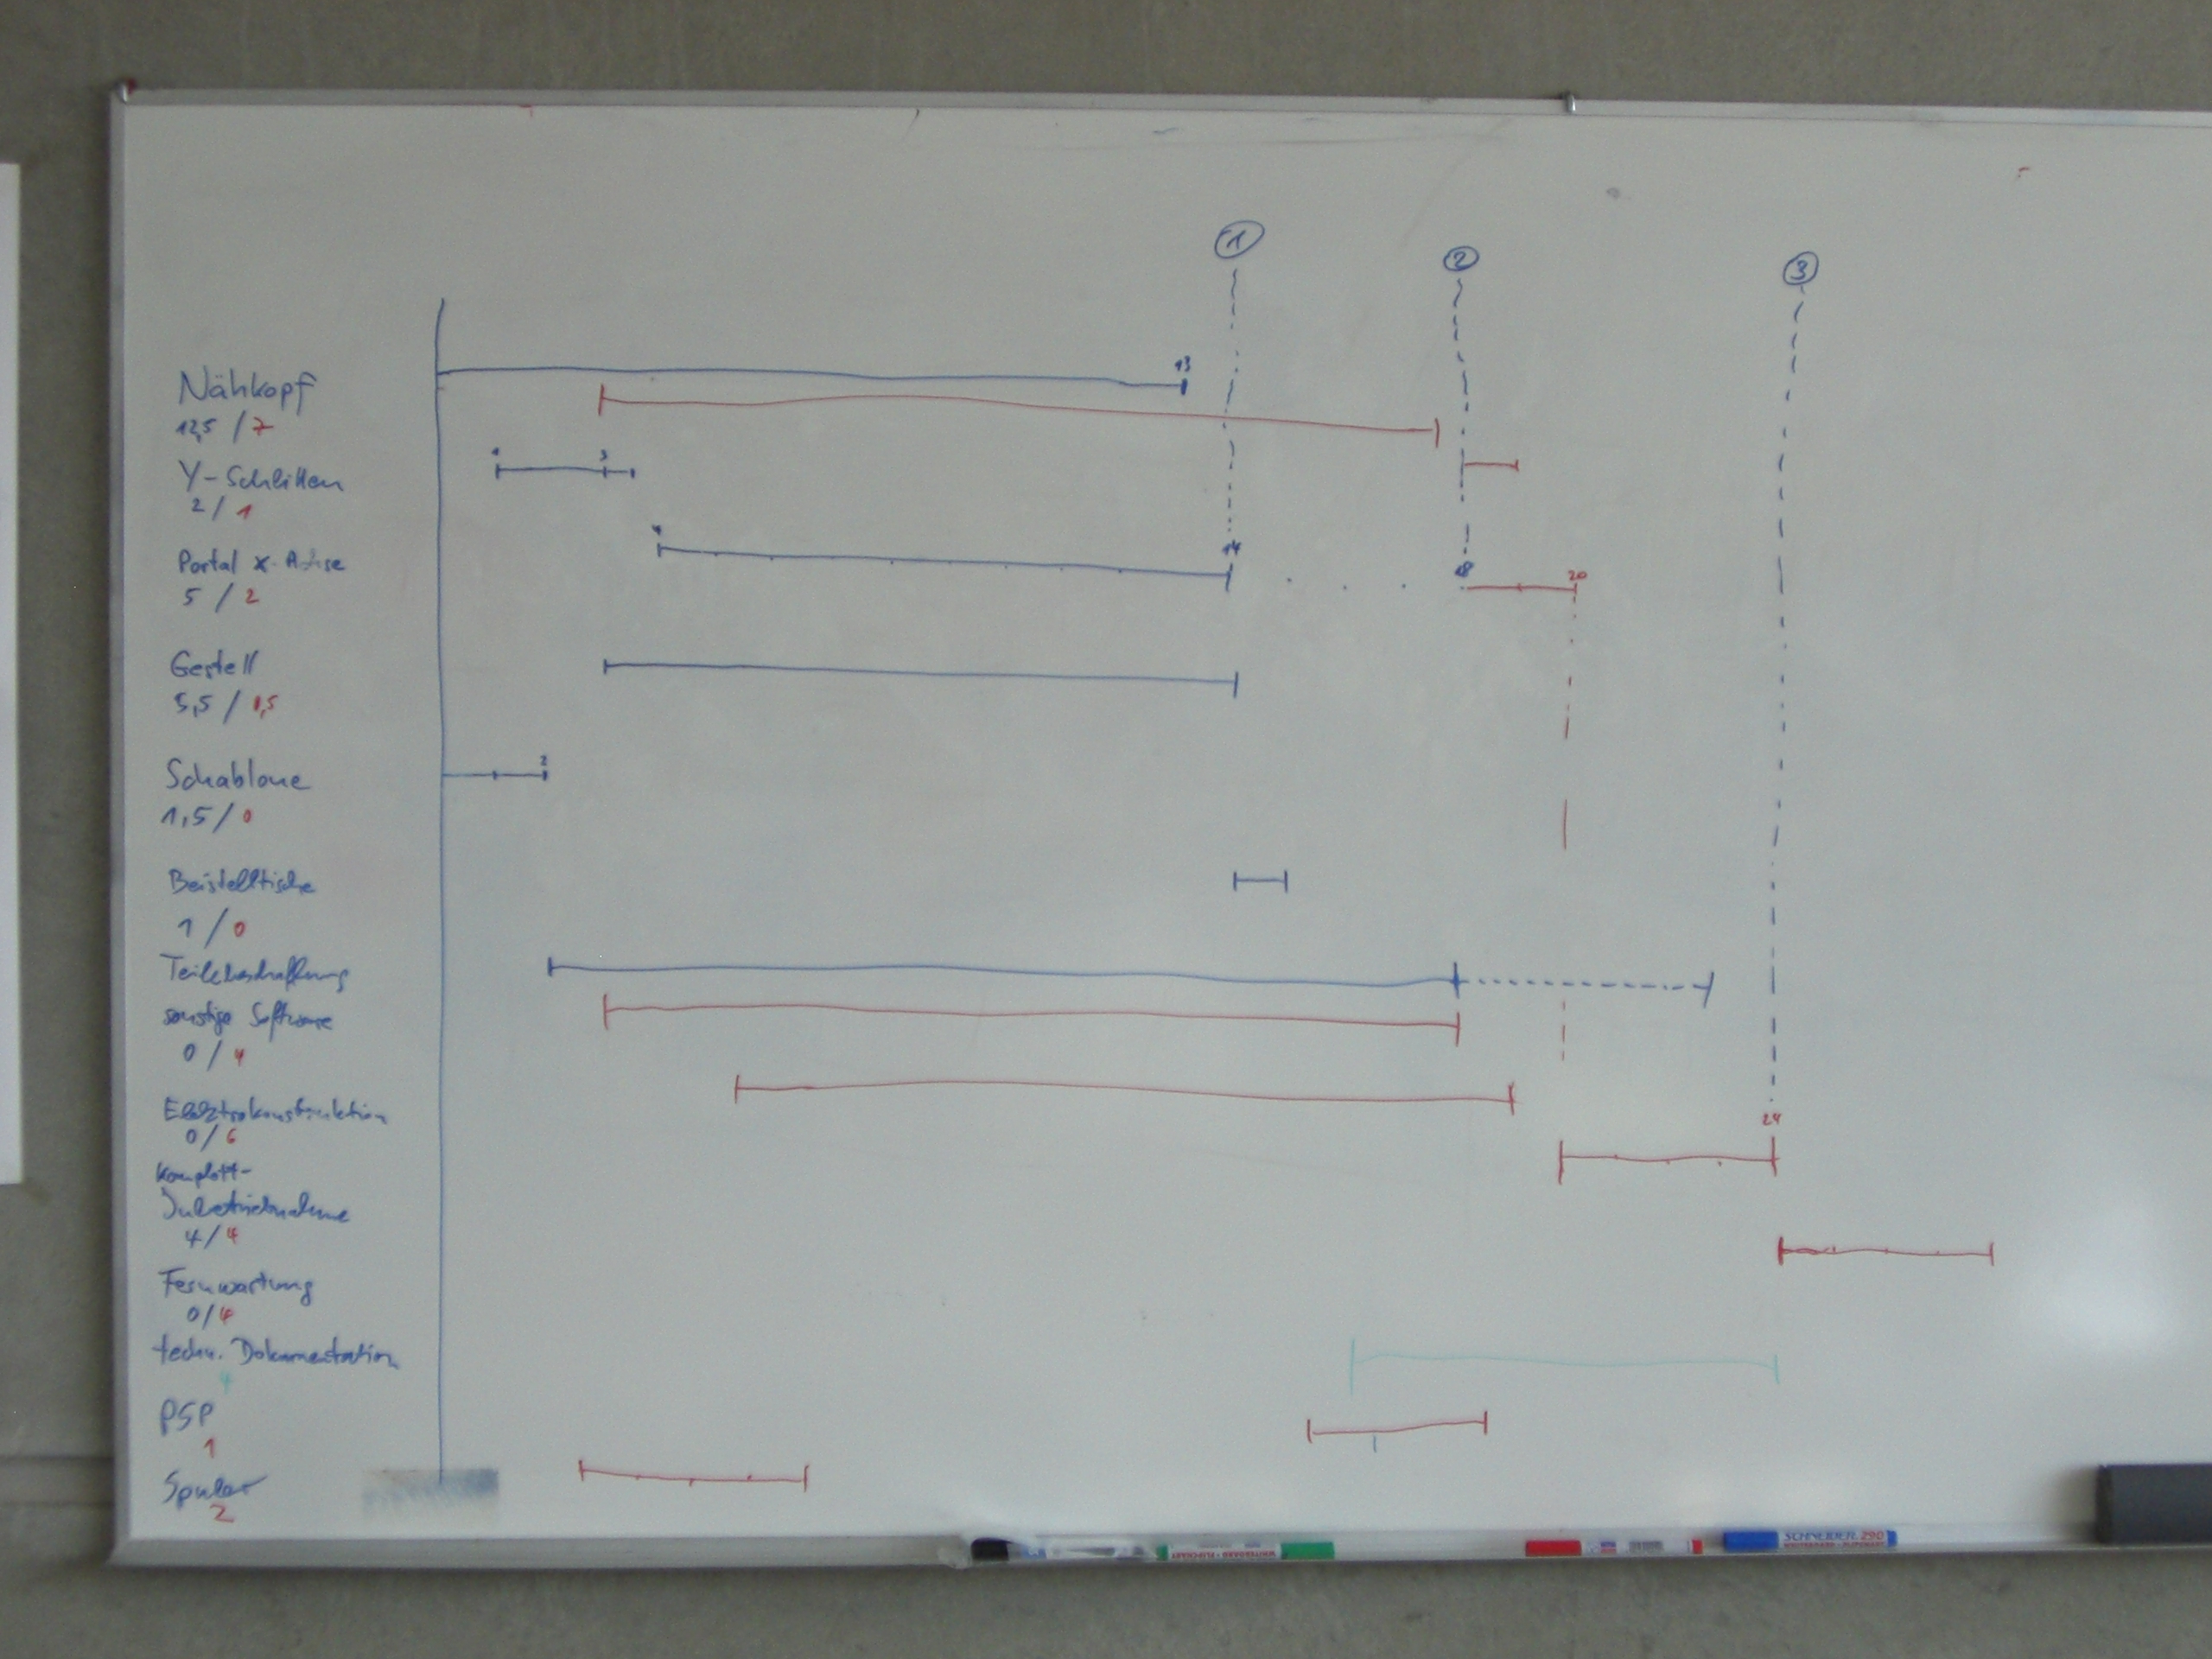 1
2
3
13
Nähkopf
12,5 / 7
1 3
Y-Schlitten
2 / 1
4 14 18 20
Portal x-Achse
5 / 2
Gestell
5,5 / 0,5
2
Schablone
1,5 / 0
Beistelltische
1 / 0
Teilebeschaffung
sonstige Software
0 / 4
Elektrokonstruktion
0 / 6
24
Komplett-
Inbetriebnahme
4 / 4
Fernwartung
0 / 4
techn. Dokumentation
4
PSP
1
Spuler
2
SCHNEIDER 290